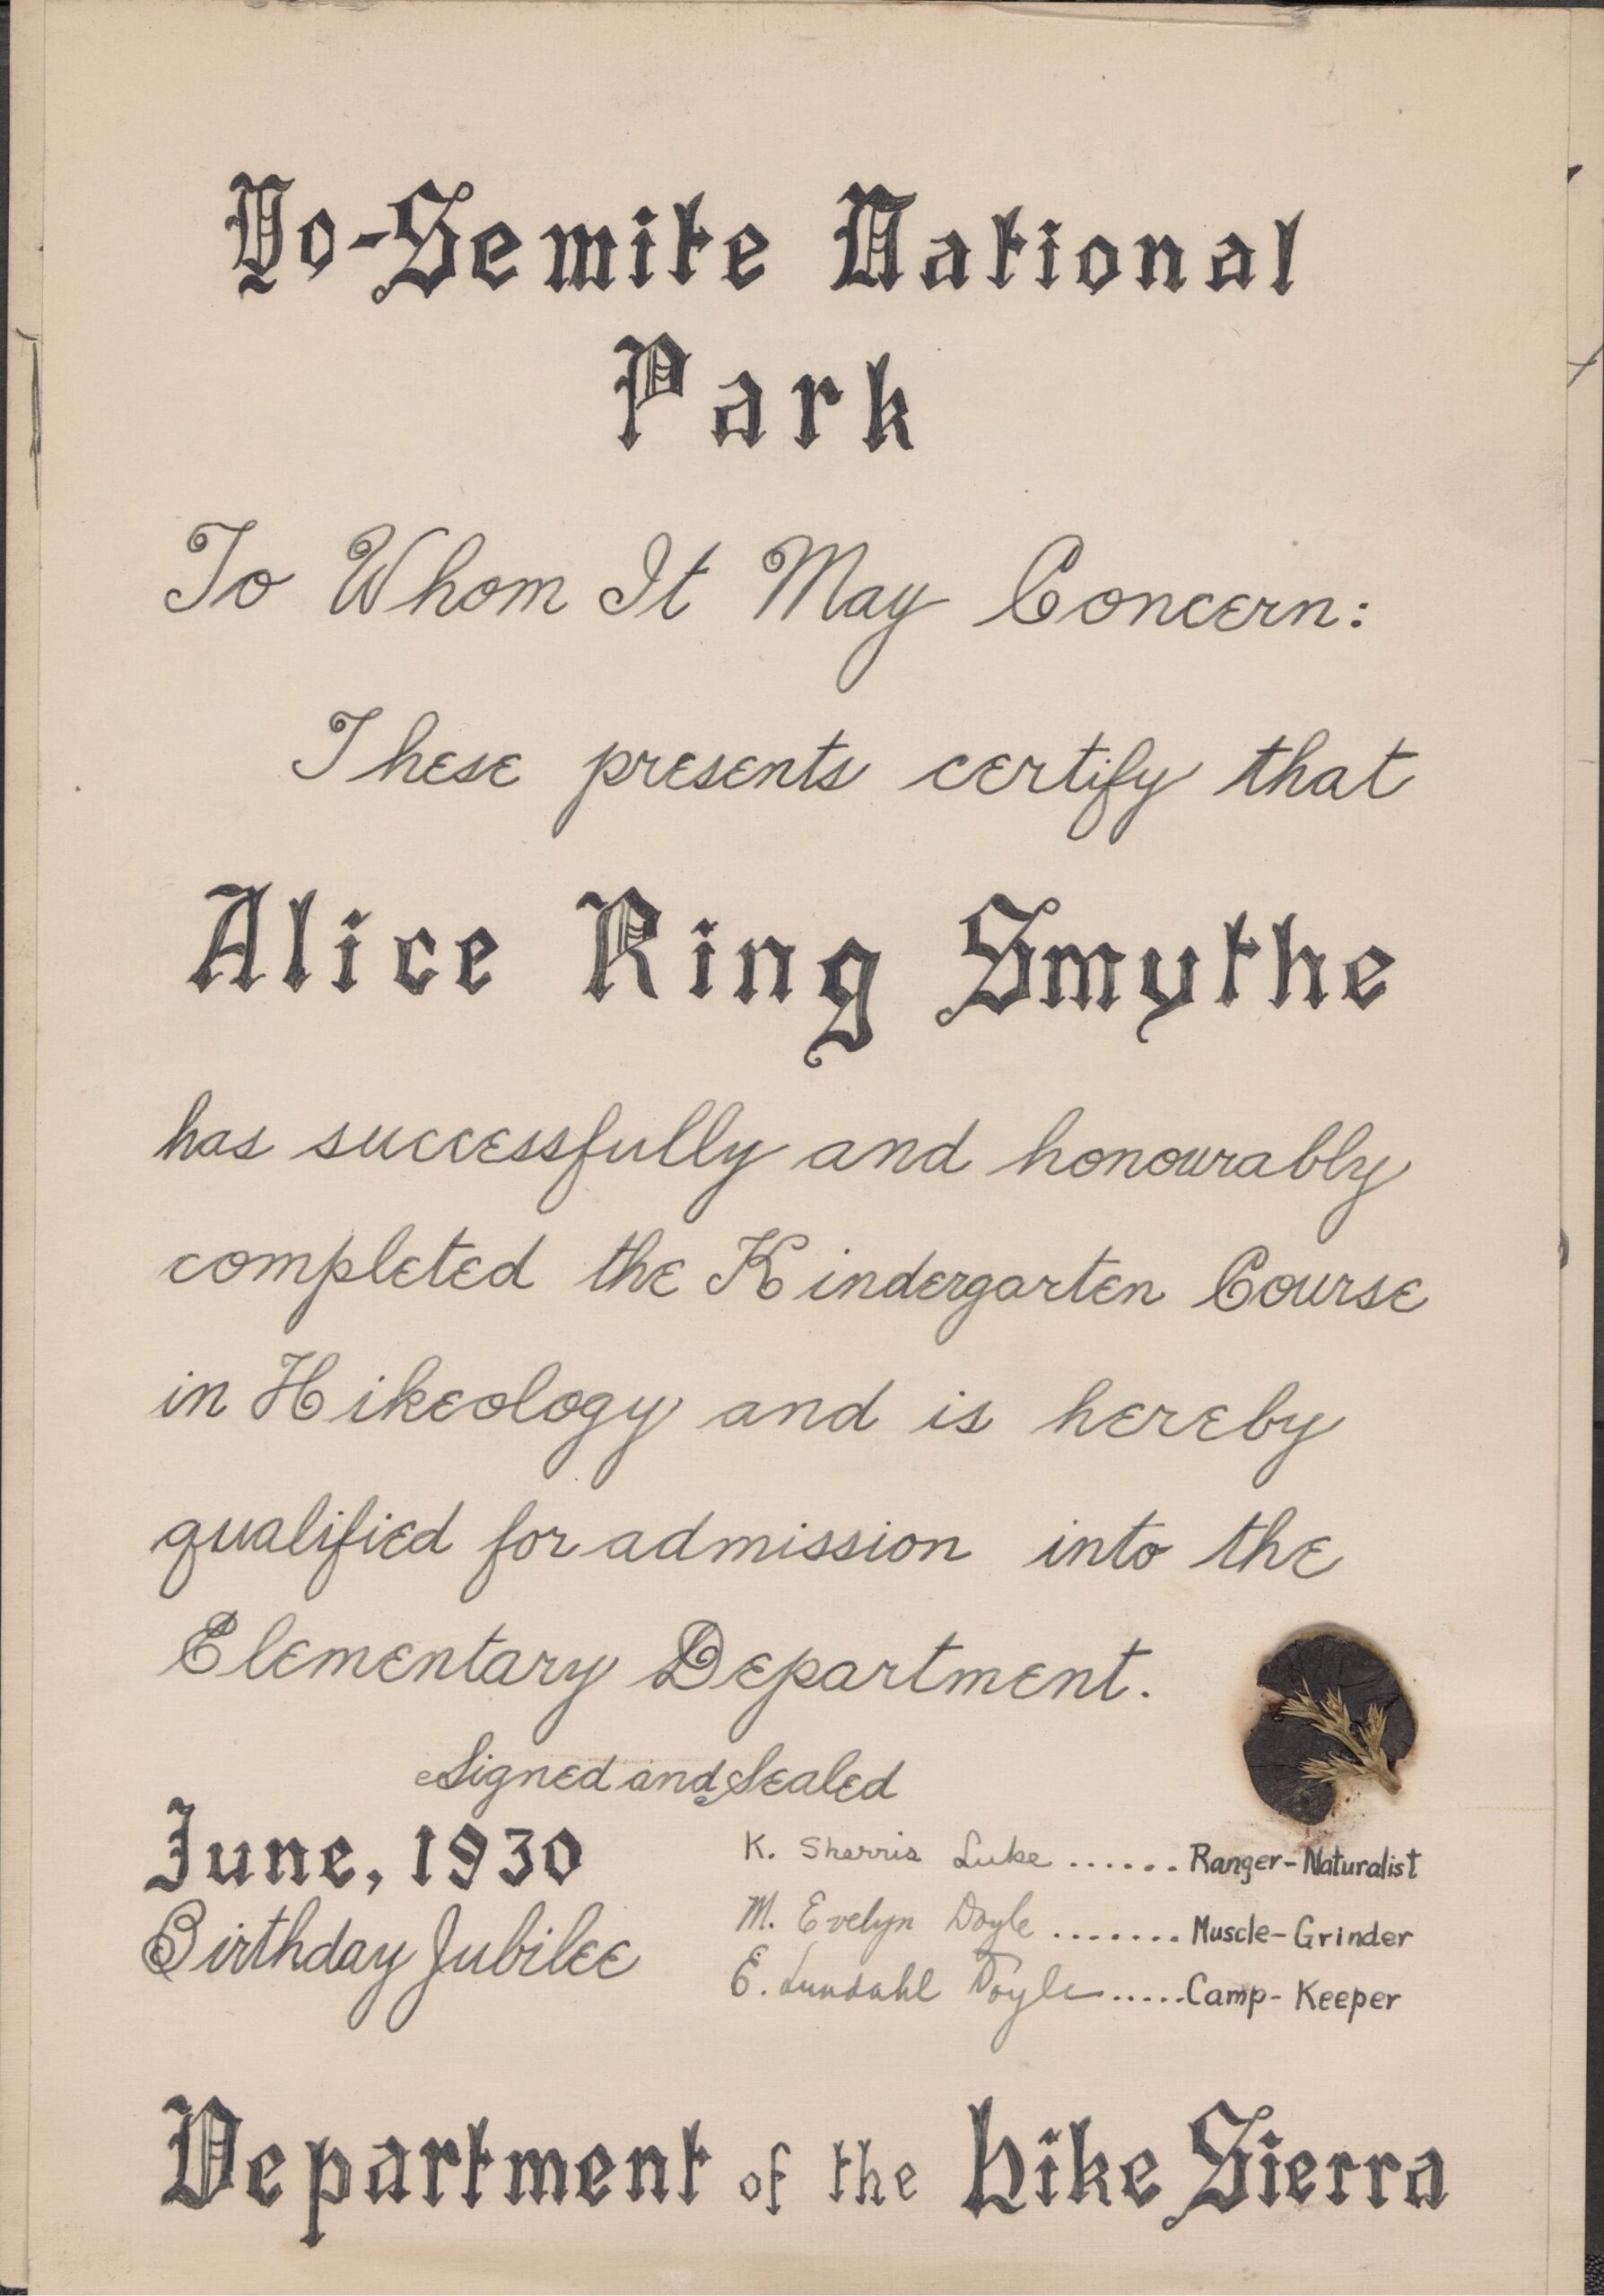 Yo-Semite National
Park
To Whom It May Concern:
These presents certify that
Alice Ring Smythe
has successfully and honourably
completed the Kindergarten Course
in Hikeology and is hereby
qualified for admission into the
Elementary Department.
Signed and Sealed
June, 1930
Birthday Jubilee
K. Sherris Luke ...... Ranger-Naturalist
M. Evelyn Doyle ....... Muscle-Grinder
E. Lundahl Doyle ..... Camp-Keeper
Department of the Hike Sierra